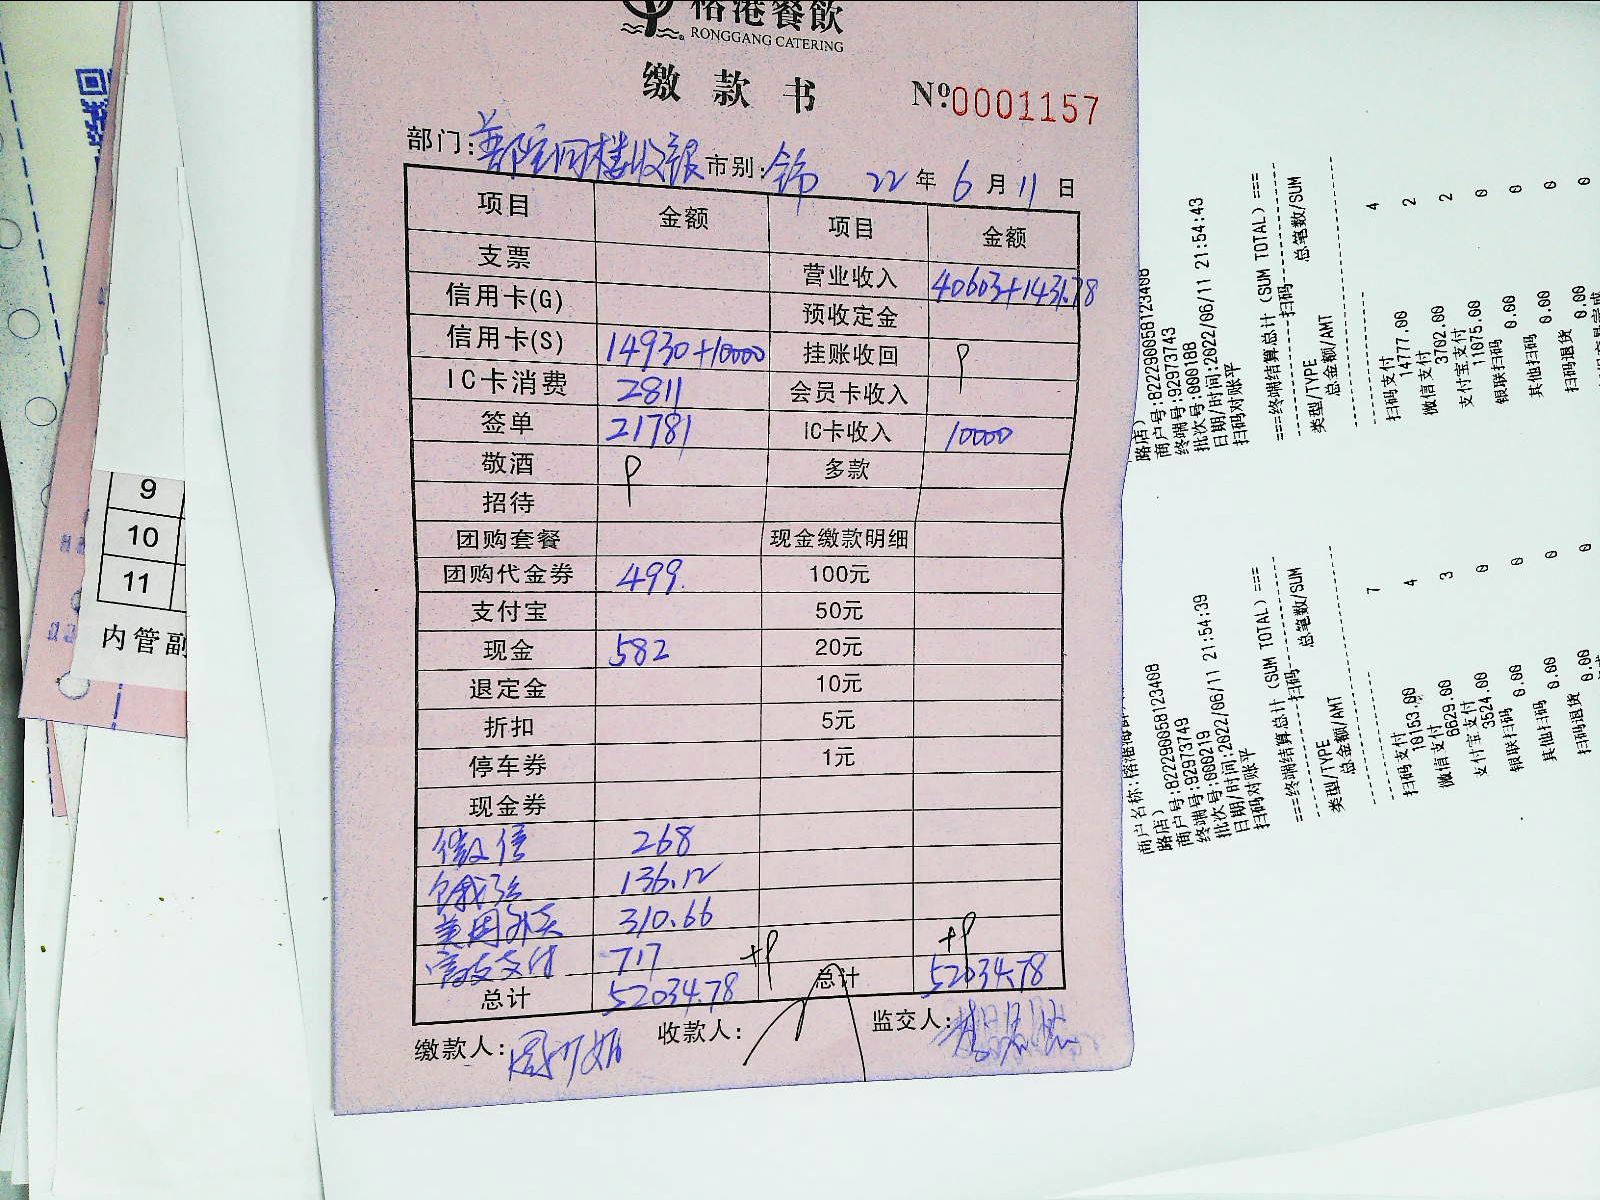 榕港餐飲
RONGGANG CATERING
缴款书 Nº0001157
部门: 楼收银 市别: 22年6月11日
项目 金额 项目 金额
支票 营业收入 40603+1431.78
信用卡(G) 预收定金
信用卡(S) 14930+10000 挂账收回
IC卡消费 2811 会员卡收入
签单 21781 IC卡收入 10000
敬酒 多款
招待
团购套餐 现金缴款明细
团购代金券 499 100元
支付宝 50元
现金 582 20元
退定金 10元
折扣 5元
停车券 1元
现金券
微信 268
136.12
美团外卖 310.66
支付 717
总计 52034.78 总计 52034.78
缴款人: 收款人: 监交人:
9
10
11
内管副
路店)
商户号:822290058123408
终端号:92973743
批次号:000188
日期/时间:2022/06/11 21:54:43
扫码对账平
===终端结算总计 (SUM TOTAL)===
扫码
类型/TYPE 总笔数/SUM
总金额/AMT
扫码支付 4
14777.00
微信支付 2
3702.00
支付宝支付 2
11075.00
银联扫码 0
0.00
其他扫码 0
0.00
扫码退货 0
0.00
商户名称:榕港海
路店)
商户号:822290058123408
终端号:92973749
批次号:000219
日期/时间:2022/06/11 21:54:39
扫码对账平
===终端结算总计 (SUM TOTAL)===
扫码
类型/TYPE 总笔数/SUM
总金额/AMT
扫码支付 7
10153.00
微信支付 4
6629.00
支付宝支付 3
3524.00
银联扫码 0
0.00
其他扫码 0
0.00
扫码退货 0
0.00